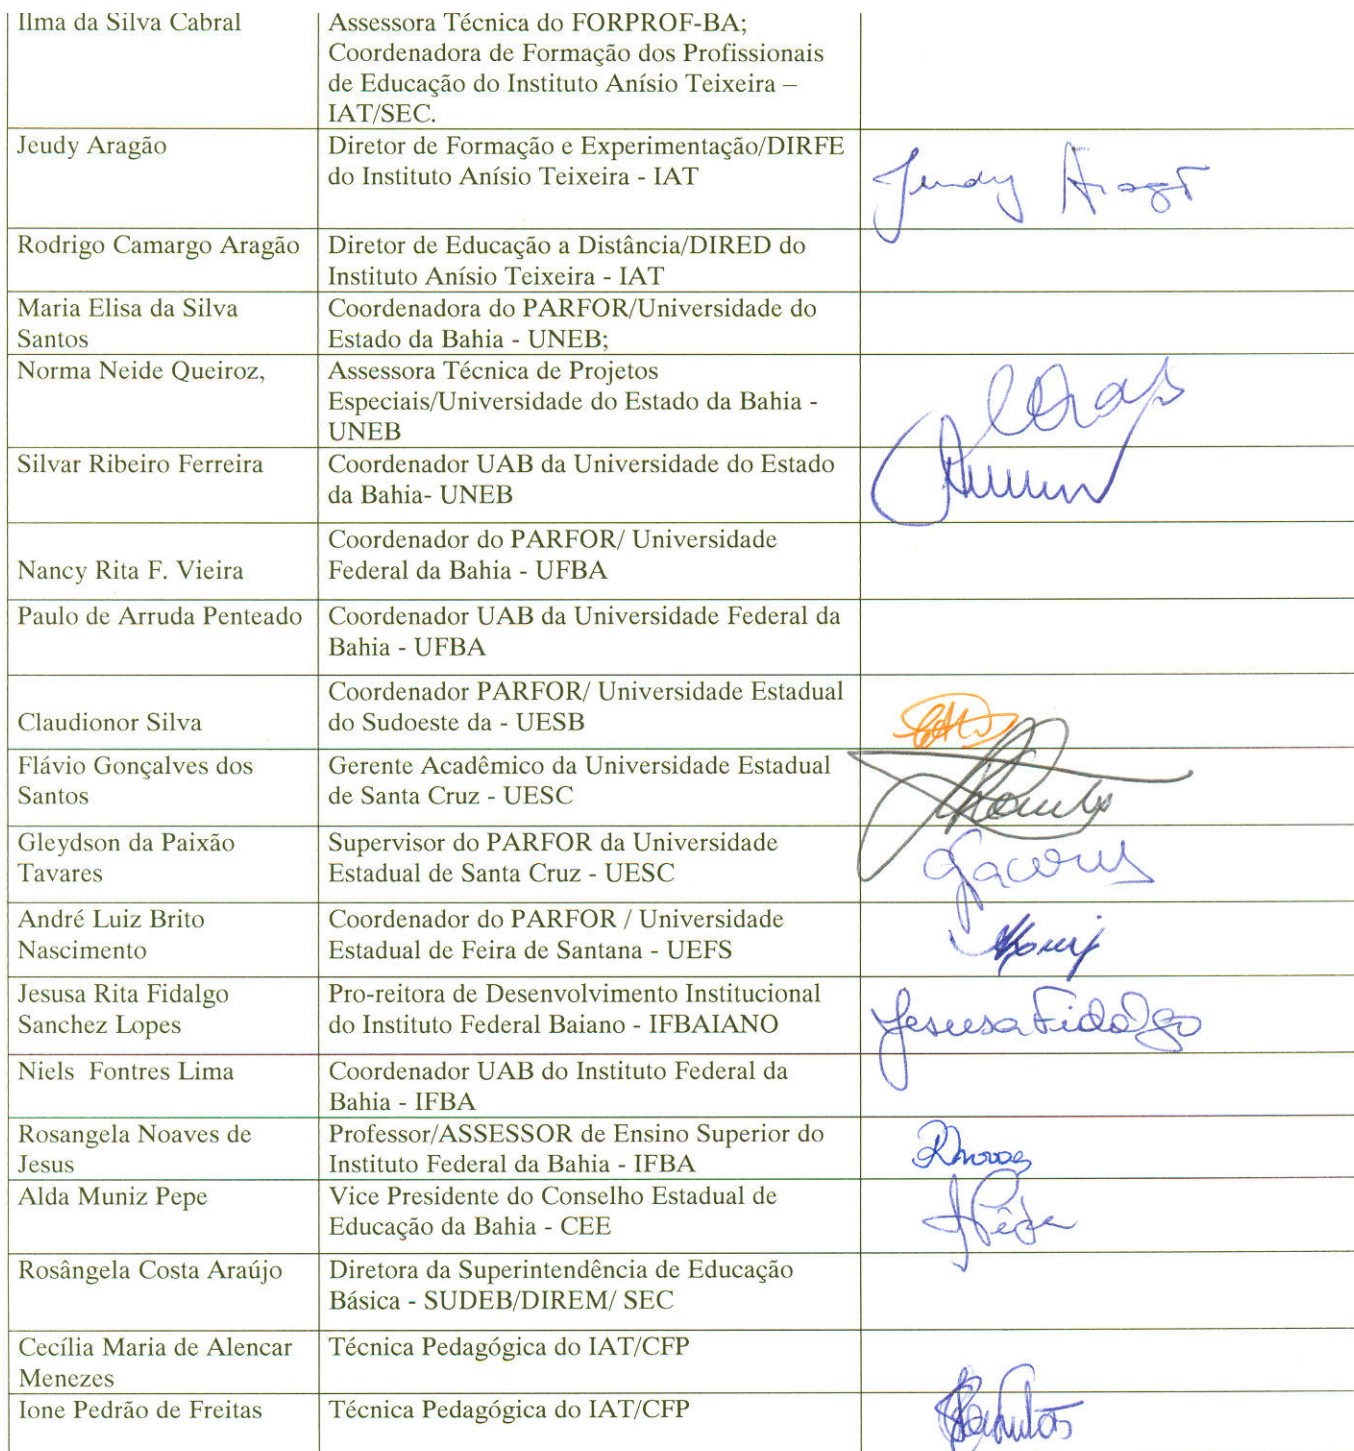 Ilma da Silva Cabral
Assessora Técnica do FORPROF-BA;
Coordenadora de Formação dos Profissionais
de Educação do Instituto Anísio Teixeira –
IAT/SEC.
Jeudy Aragão
Diretor de Formação e Experimentação/DIRFE
do Instituto Anísio Teixeira - IAT
Jeudy Aragão
Rodrigo Camargo Aragão
Diretor de Educação a Distância/DIRED do
Instituto Anísio Teixeira - IAT
Maria Elisa da Silva
Santos
Coordenadora do PARFOR/Universidade do
Estado da Bahia - UNEB;
Norma Neide Queiroz,
Assessora Técnica de Projetos
Especiais/Universidade do Estado da Bahia -
UNEB
Silvar Ribeiro Ferreira
Coordenador UAB da Universidade do Estado
da Bahia- UNEB
Nancy Rita F. Vieira
Coordenador do PARFOR/ Universidade
Federal da Bahia - UFBA
Paulo de Arruda Penteado
Coordenador UAB da Universidade Federal da
Bahia - UFBA
Claudionor Silva
Coordenador PARFOR/ Universidade Estadual
do Sudoeste da - UESB
Flávio Gonçalves dos
Santos
Gerente Acadêmico da Universidade Estadual
de Santa Cruz - UESC
Gleydson da Paixão
Tavares
Supervisor do PARFOR da Universidade
Estadual de Santa Cruz - UESC
André Luiz Brito
Nascimento
Coordenador do PARFOR / Universidade
Estadual de Feira de Santana - UEFS
Jesusa Rita Fidalgo
Sanchez Lopes
Pro-reitora de Desenvolvimento Institucional
do Instituto Federal Baiano - IFBAIANO
Jesusa Fidalgo
Niels Fontres Lima
Coordenador UAB do Instituto Federal da
Bahia - IFBA
Rosangela Noaves de
Jesus
Professor/ASSESSOR de Ensino Superior do
Instituto Federal da Bahia - IFBA
Alda Muniz Pepe
Vice Presidente do Conselho Estadual de
Educação da Bahia - CEE
Rosângela Costa Araújo
Diretora da Superintendência de Educação
Básica - SUDEB/DIREM/ SEC
Cecília Maria de Alencar
Menezes
Técnica Pedagógica do IAT/CFP
Ione Pedrão de Freitas
Técnica Pedagógica do IAT/CFP